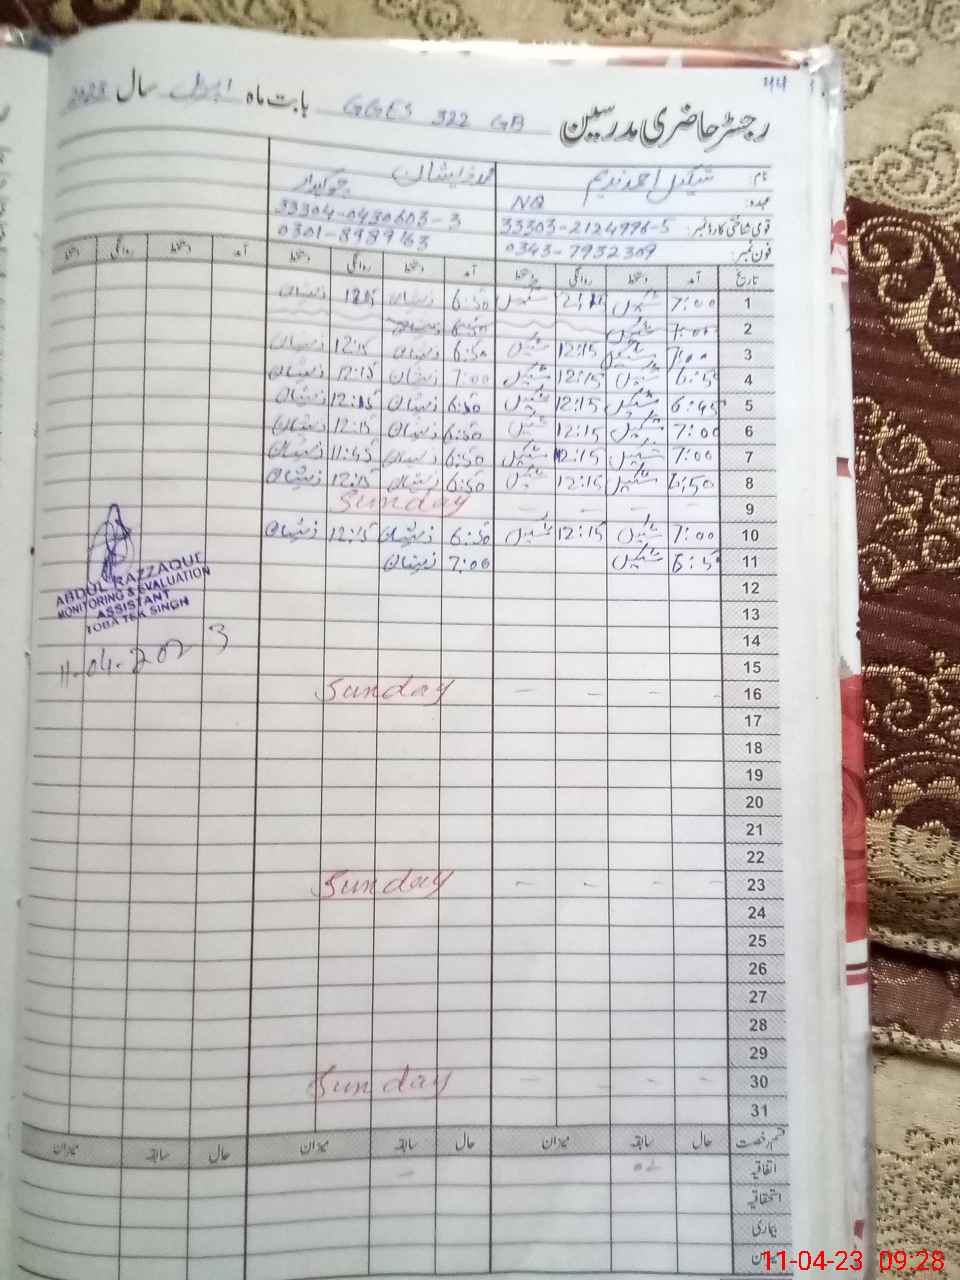 44
رجسٹر حاضری مدرسین GGES 322 GB بابت ماہ اپریل سال 2023
نام: شکیل احمد ندیم محمد ذیشان
عہدہ: NQ چوکیدار
قومی شناختی کارڈ نمبر: 33303-2124996-5 33304-0430603-3
فون نمبر: 0343-7932309 0301-8989163
تاریخ آمد دستخط روانگی دستخط آمد دستخط روانگی دستخط آمد دستخط روانگی دستخط
1 7:00 شکیل شکیل 6:50 ذیشان ذیشان
2 7:00 شکیل 6:50 ذیشان
3 7:00 شکیل 12:15 شکیل 6:50 ذیشان 12:15 ذیشان
4 6:50 شکیل 12:15 شکیل 7:00 ذیشان 12:15 ذیشان
5 6:45 شکیل 12:15 شکیل 6:50 ذیشان 12:15 ذیشان
6 7:00 شکیل 12:15 شکیل 6:50 ذیشان 12:15 ذیشان
7 7:00 شکیل 12:15 شکیل 6:50 ذیشان 11:45 ذیشان
8 6:50 شکیل 12:15 شکیل 6:50 ذیشان 12:15 ذیشان
9 - - - - Sunday
10 7:00 شکیل 12:15 شکیل 6:50 ذیشان 12:15 ذیشان
11 6:50 شکیل 7:00 ذیشان
12
13
14
15
16 - - - - Sunday
17
18
19
20
21
22
23 - - - - Sunday
24
25
26
27
28
29
30 - - - - Sunday
31
ABDUL RAZZAQUE
MONITORING & EVALUATION
ASSISTANT
TOBA TEK SINGH
11-04-2023
قسم رخصت حال سابقہ میزان حال سابقہ میزان حال سابقہ میزان
اتفاقیہ 02 -
استحقاقیہ
بیماری
میزان
11-04-23 09:28